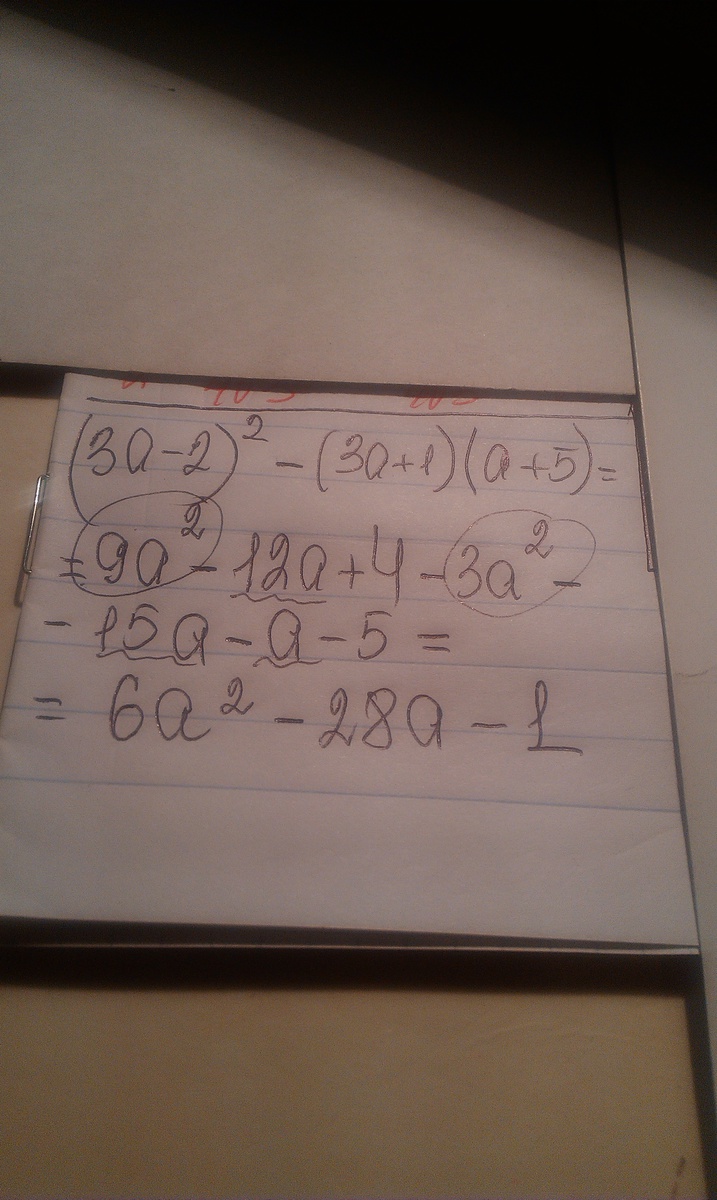 (3a-2)² - (3a+1)(a+5)=
=9a² - 12a+4-3a² -
- 15a - a - 5 =
= 6a² - 28a - 1